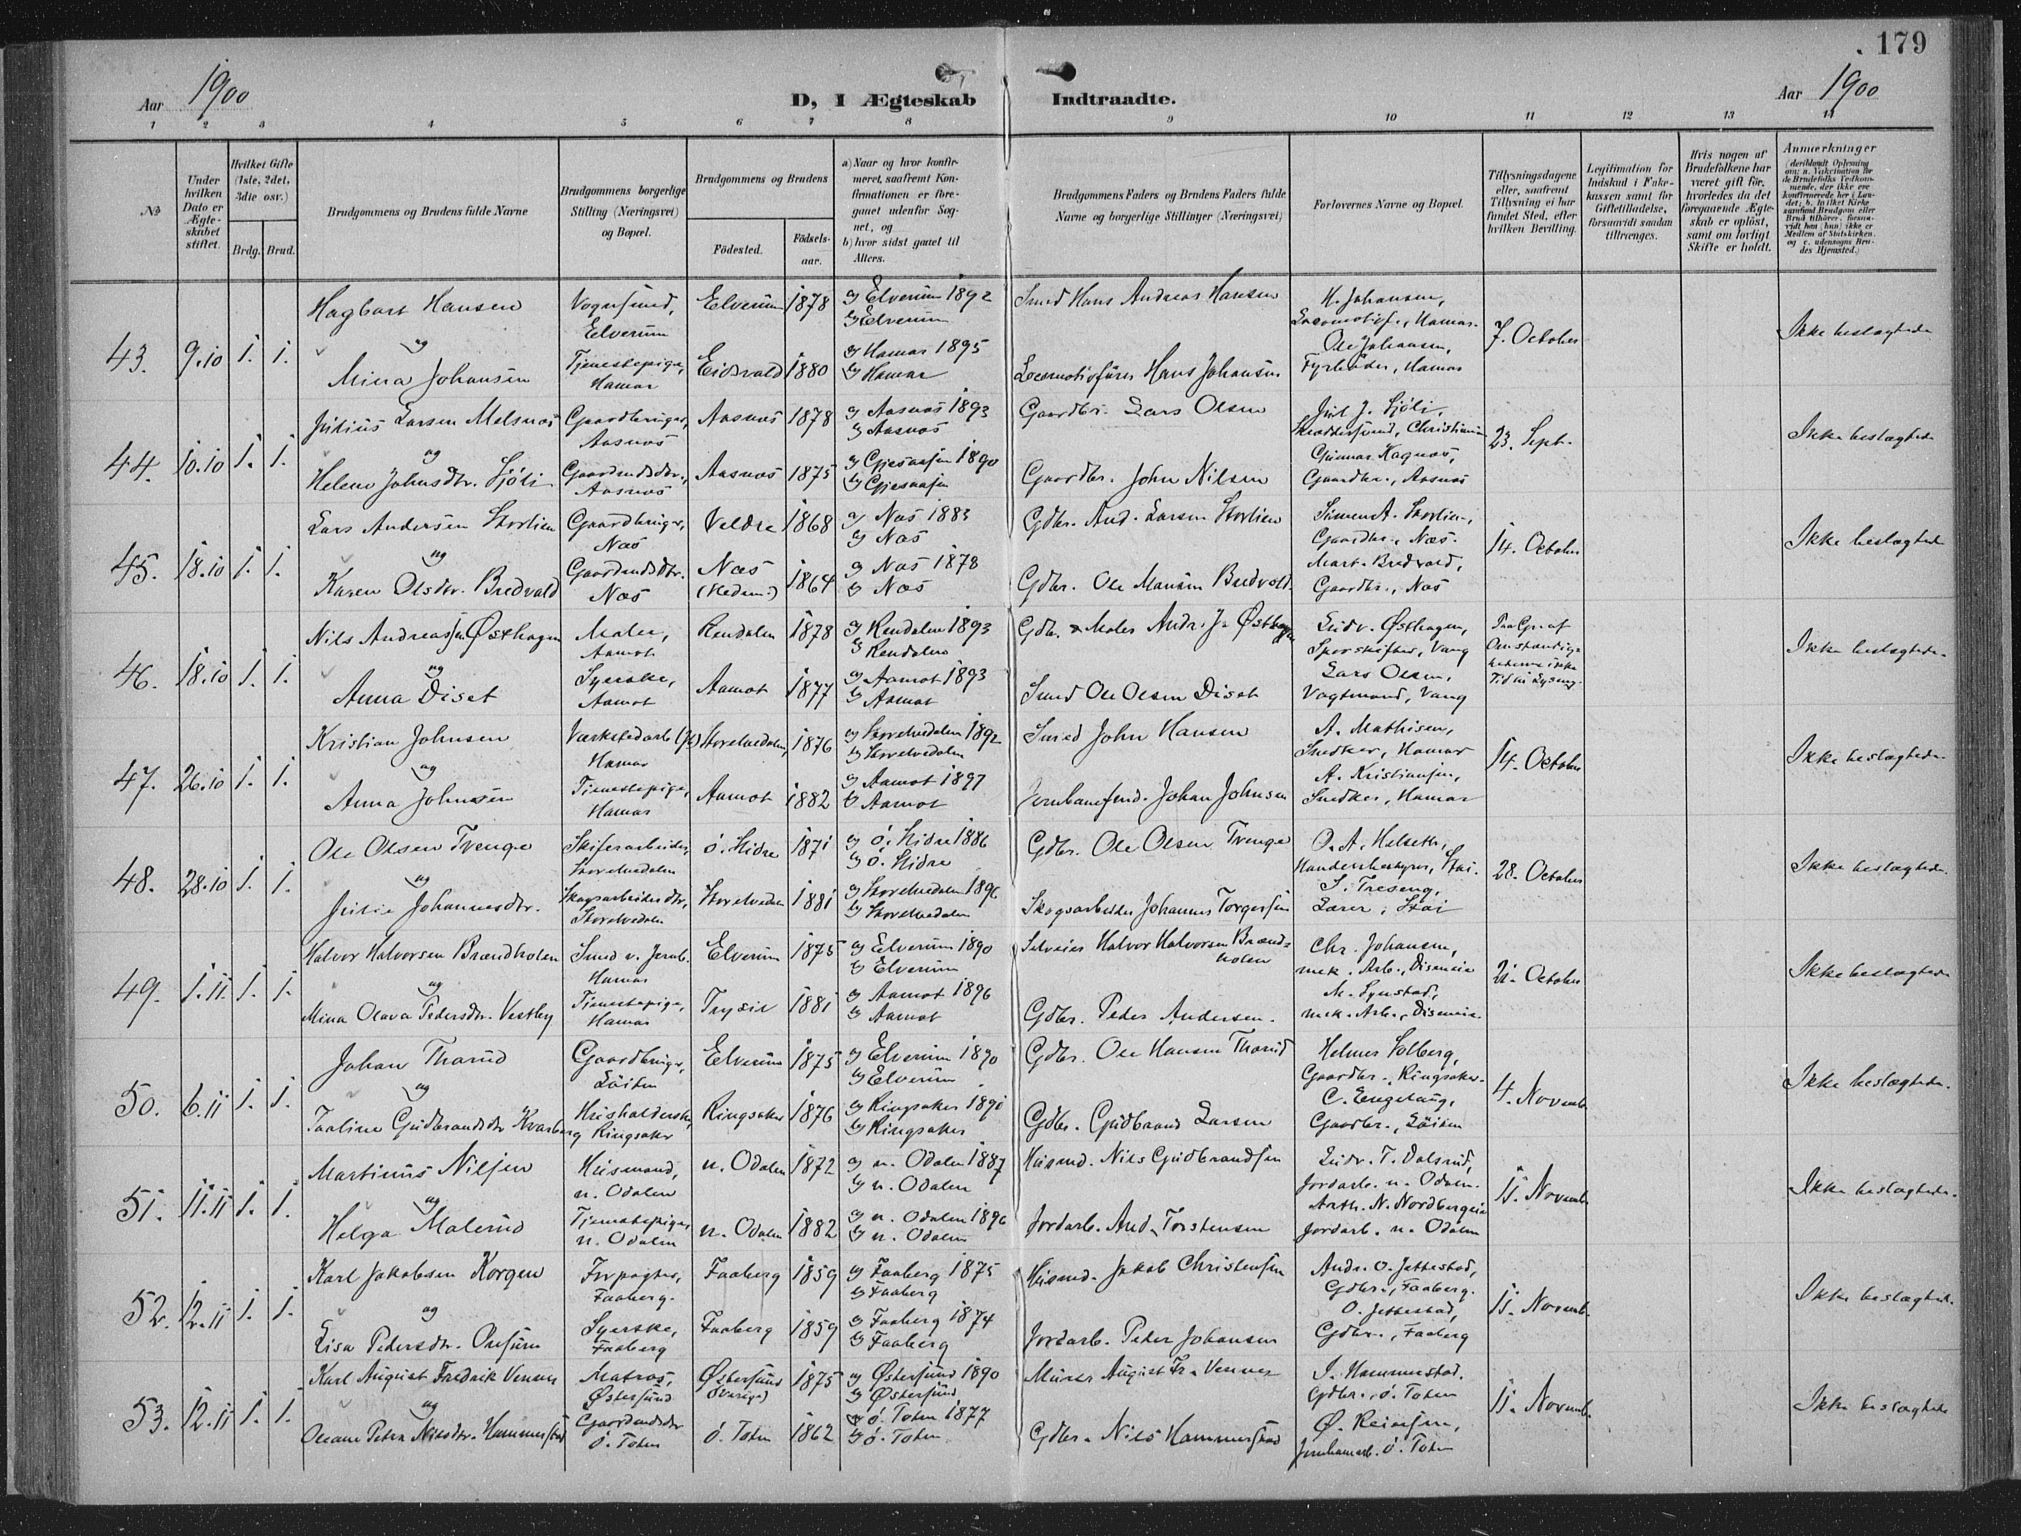 179
Aar 1900
D, I Ægteskab Indtraadte.
Aar 1900
1 2 3 4 5 6 7 8 9 10 11 12 13 14
No
Under hvilken Dato er Ægteskabet stiftet.
Hvilket Gifte (1ste, 2det, 3die osv.)
Brdg. Brud.
Brudgommens og Brudens fulde Navne
Brudgommens borgerlige Stilling (Næringsvei) og Bopæl.
Brudgommens og Brudens
Fødested.
Fødselsaar.
a) Naar og hvor konfirmeret, saafremt Konfirmationen er foregaaet udenfor Sognet, og
b) hvor sidst gaaet til Alters.
Brudgommens Faders og Brudens Faders fulde Navne og borgerlige Stillinger (Næringsvei)
Forlovernes Navne og Bopæl.
Tillysningsdagene eller, saafremt Tillysning ei har fundet Sted, efter hvilken Bevilling.
Legitimation for Indskud i Enkekassen samt for Giftetilladelse, forsaavidt saadan tiltrænges.
Hvis nogen af Brudefolkene har været gift før, hvorledes da det foregaaende Ægteskab er opløst, samt om lovligt Skifte er holdt.
Anmerkninger
43. 9.10 1. 1. Hagbart Hansen Vognsmand, Elverum Elverum 1878 a) Elverum 1892 b) Elverum Smed Hans Andreas Hansen H. Johansen, Locomotivf., Hamar. 7. October Ikke beslægtede
og
Mina Johansen Tjenestepige, Hamar Eidsvold 1880 a) Hamar 1895 b) Hamar Locomotivfører Hans Johansen Ole Johansen, Fyrbøder, Hamar
44. 10.10 1. 1. Julius Larsen Melsnæs Gaardbruger, Aasnæs Aasnæs 1878 a) Aasnæs 1893 b) Aasnæs Gaardbr. Lars Olsen Juul J. Sjøli, Christiania 23. Sept. Ikke beslægtede
og
Helene Johnsdtr. Sjøli Gaardmdsdtr., Aasnæs Aasnæs 1875 a) Gjesaasen 1890 b) Gjesaasen Gaardbr. John Nilsen Gunnar Kagnæs, Gaardbr., Aasnæs
45. 18.10 1. 1. Lars Andersen Stortien Gaardbruger, Næs Veldre 1868 a) Næs 1883 b) Næs Gdbr. And. Larsen Stortien Simen A. Stortien, Gaardbr., Næs. 14. October Ikke beslægtede
og
Karen Olsdtr. Bredvold Gaardmdsdtr. Næs Næs (Hedem.) 1864 a) Næs 1878 b) Næs Gdbr. Ole Monsen Bredvold. Mart. Bredvold, Gaardbr., Næs
46. 18.10 1. 1. Nils Andreassen Østhagen Maler, Aamot Rendalen 1878 a) Rendalen 1893 b) Rendalen Gdbr. & Maler Andr. J. Østhagen Ludv. Østhagen, Sporskifter, Vang Paa Gr. af Omstændighederne ikke Tid til Lysning. Ikke beslægtede.
og
Anna Diset Syerske, Aamot Aamot 1877 a) Aamot 1893 b) Aamot Smed Ole Olsen Diset Lars Olsen, Vogtmand, Vang
47. 26.10 1. 1. Kristian Johnsen Værkstedarb. Hamar Storelvedalen, 1876 a) Storelvedalen 1892 b) Storelvedalen Smed John Hansen A. Mathisen, Snedker, Hamar 14. October Ikke beslægtede.
og
Anna Johnsen Tjenestepige, Hamar Aamot 1882 a) Aamot 1897 b) Aamot Jernbanefmd. Johan Johnsen A. Kristiansen, Snedker, Hamar
48. 28.10 1. 1. Ole Olsen Trenge Skiferarbeider, Storelvedalen ø. Slidre 1871 a) ø. Slidre 1886 b) ø. Slidre Gdbr. Ole Olsen Trenge O. A. Helseth, Handelsbestyrer, Stai. 28. October Ikke beslægtede.
og
Julie Johannesdtr. Skogsarbeidersdtr, Storelvedalen Storelvedalen 1881 a) Storelvedalen 1896 b) Storelvedalen Skogsarbeider Johannes Torgersen S. Treseng, Lærer, Stai
49. 1.11 1. 1. Halvor Halvorsen Brændholen Smed v. Jernb. Hamar Elverum 1875 a) Elverum 1890 b) Elverum Selveier Halvor Halvorsen Brændholen Chr. Johansen, mek. Arb., Disenvia 21. October Ikke beslægtede
og
Mina Olava Pedersdtr. Vestby Tjenestepige, Hamar Trysil 1881 a) Aamot 1896 b) Aamot Gdbr. Peder Andersen. M. Lynstad, mek. Arb., Disenvia.
50. 6.11 1. 1. Johan Thorud Gaardbruger, Løiten Elverum 1875 a) Elverum 1890 b) Elverum Gdbr. Ole Hansen Thorud Helmer Solberg, Gaardbr., Ringsaker. 4. Novemb. Ikke beslægtede.
og
Pauline Gudbrandsdtr Kvarberg Husholderske, Ringsaker Ringsaker 1876 a) Ringsaker 1890 b) Ringsaker Gdbr. Gudbrand Larsen C. Engelaug, Gaardbr., Løiten
51. 11.11 1. 1. Martinus Nilsen Husmand, n. Odalen n. Odalen 1872 a) n. Odalen 1887 b) n. Odalen Husmd. Nils Gudbrandsen Ludv. T. Dalsrud, Jordarb. n. Odalen. 11. Novemb. Ikke beslægtede.
og
Helga Malerud Tjenestepige, n. Odalen n. Odalen 1882 a) n. Odalen 1896 b) n. Odalen Jordarb. And. Torstensen Anth. N. Nordbergeie Jordarb. n. Odalen
52. 12.11 1. 1. Karl Jakobsen Korgen Forpagter, Faaberg. Faaberg 1859 a) Faaberg 1875 b) Faaberg Husmd. Jakob Christensen Andr. O. Jettestad, Gdbr., Faaberg. 11. Novemb. Ikke beslægtede.
og
Lisa Pedersdtr. Onsum Syerske, Faaberg Faaberg 1859 a) Faaberg 1874 b) Faaberg Jordarb. Peder Johansen O. Jettestad, Gdbr., Faaberg
53. 12.11 1. 1. Karl August Fredrik Venner Matros, Østersund Østersund (Sverige) 1875 a) Østersund 1890 b) Østersund Murer August Fr. Venner J. Hammerstad. Gdbr., ø. Toten 11. Novemb. Ikke beslægtede
og
Oleane Petra Nilsdtr. Hammerstad Gaardmdsdtr ø. Toten ø. Toten 1862 a) ø. Toten 1877 b) ø. Toten Gdbr. Nils Hammerstad Ø. Reinsen, Jernbanearb. ø. Toten